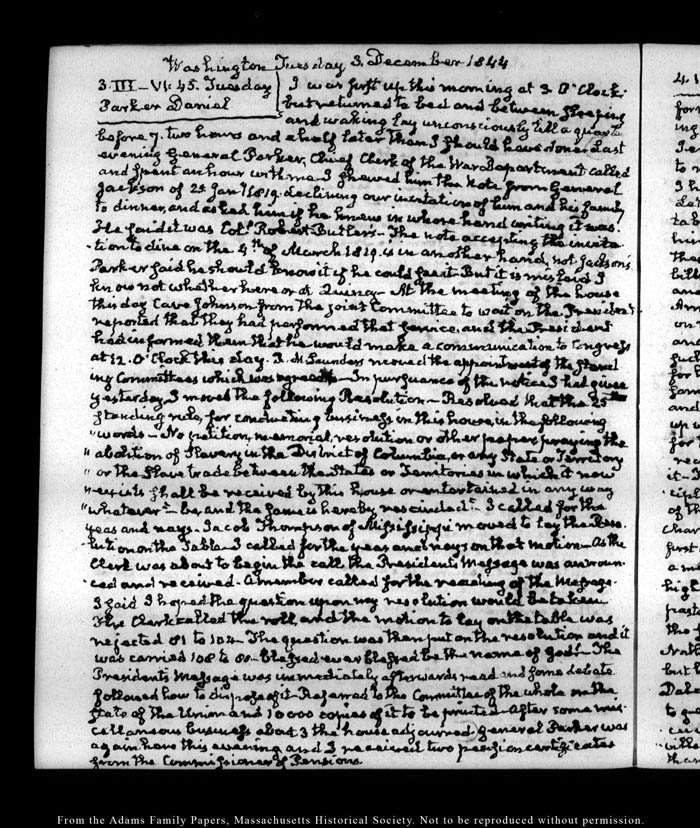 Washington Tuesday 3. December 1844
3. III–VI:45. Tuesday
Parker Daniel
I was first up this morning at 3 O'Clock
but returned to bed and between sleeping
and waking lay unconsciously till a quarter
before 7. two hours and a half later than I should have done. Last
evening General Parker, Chief Clerk of the War Department called
and spent an hour with me. I shewed him the Note from General
Jackson of 25 Jany 1819. declining our invitation of him and his family
to dinner, and asked him if he knew in whose hand writing it was.
He said it was Col. Robert Butler's— The note accepting the invita-
-tion to dine on the 4th of March 1819. is in another hand, not Jackson's
Parker said he should know it if he could see it— But it is mislaid I
know not whether here or at Quincy— At the meeting of the house
this day Cave Johnson from the joint Committee to wait on the President
reported that they had performed that service, and the President
had informed them that he would make a communication to Congress
at 12. O'Clock this day. R. M. Saunders moved the appointment of the stand
ing Committees which was agreed to— In pursuance of the notice I had given
yesterday, I moved the following Resolution— Resolved that the 25th
standing rule, for conducting business in this house, in the following
"words— No petition, memorial, resolution or other paper praying the
" abolition of Slavery in the District of Columbia, or any State or Territory
" or the Slave trade between the States or Territories in which it now
" exists shall be received by this house or entertained in any way
"whatever"— be, and the same is hereby rescinded. I called for the
yeas and nays. Jacob Thompson of Mississippi moved to lay the Reso-
-lution on the table— I called for the yeas and nays on that motion— As the
Clerk was about to begin the call, the President's Message was announ-
-ced and received. A member called for the reading of the Message.
I said I hoped the question upon my resolution would be taken
The Clerk called the roll, and the motion to lay on the table was
rejected 81 to 104— The question was then put on the resolution and it
was carried 108 to 80— blessed ever blessed be the name of God!— The
President's Message was immediately afterwards read and some debate
followed how to dispose of it— Referred to the Committee of the whole on the
state of the Union and 10000 copies of it to be printed— After some mis-
-cellaneous business about 3 the house adjourned. General Parker was
again here this evening and I received two pension certificates
from the Commissioner of Pensions.
From the Adams Family Papers, Massachusetts Historical Society. Not to be reproduced without permission.